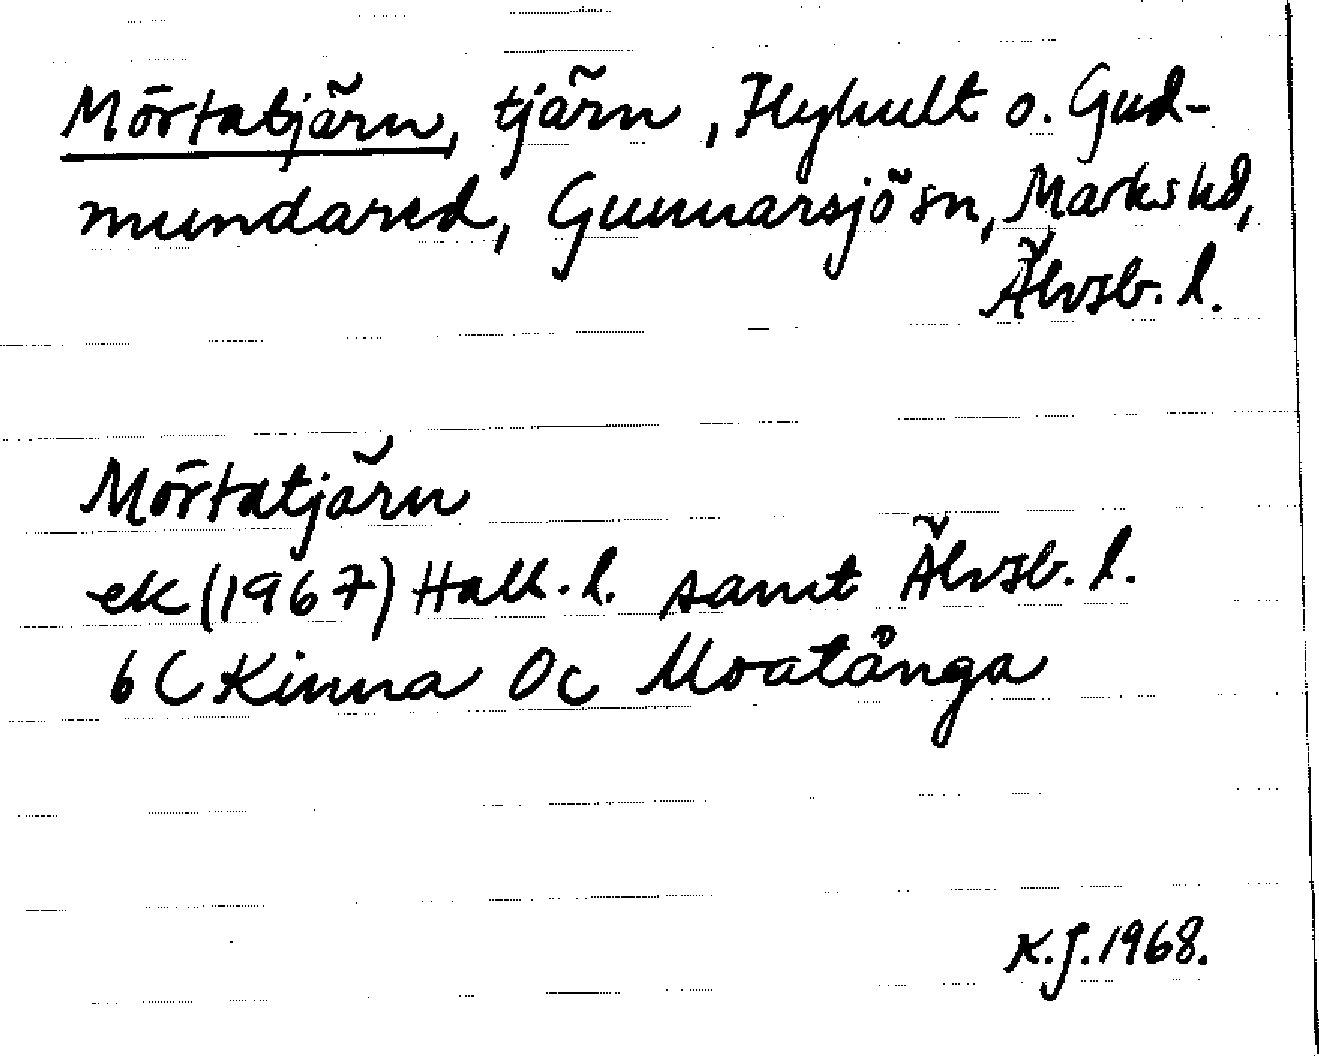 Mörtatjärn, tjärn, Flyhult o. Gud-
mundared, Gunnarsjö sn, Marks hd,
Älvsb. l.
Mörtatjärn
ek (1967) Hall. l. samt Älvsb. l.
6 C Kinna 0c Moatånga
K.J. 1968.